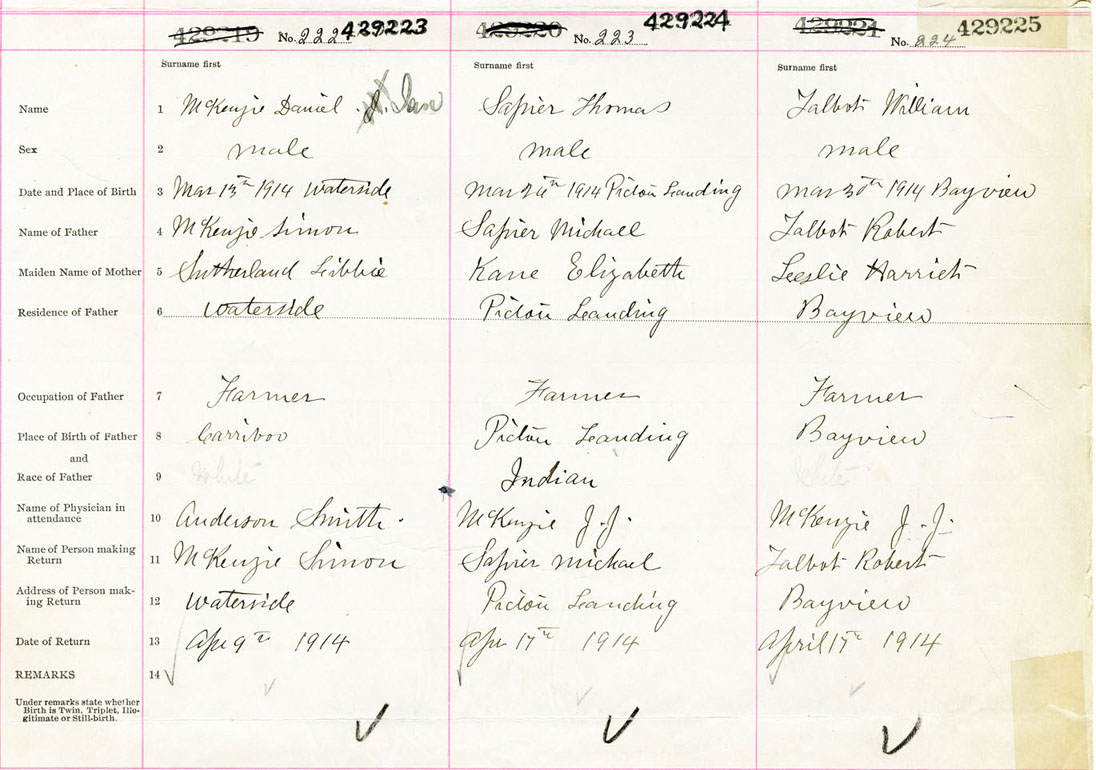 429219 No. 222 429223 429220 No. 223 429224 429221 No. 224 429225
Surname first Surname first Surname first
Name 1 McKenzie Daniel Sapier Thomas Talbot William
Sex 2 male male male
Date and Place of Birth 3 Mar 13th 1914 Waterside Mar 24th 1914 Pictou Landing Mar 30th 1914 Bayview
Name of Father 4 McKenzie Simon Sapier Michael Talbot Robert
Maiden Name of Mother 5 Sutherland Libbie Kane Elizabeth Leeslie Harriet
Residence of Father 6 Waterside Pictou Landing Bayview
Occupation of Father 7 Farmer Farmer Farmer
Place of Birth of Father 8 Carriboo Pictou Landing Bayview
and
Race of Father 9 White Indian White
Name of Physician in
attendance 10 Anderson Smith. McKenzie J.J. McKenzie J.J.
Name of Person making
Return 11 McKenzie Simon Sapier Michael Talbot Robert
Address of Person mak-
ing Return 12 Waterside Pictou Landing Bayview
Date of Return 13 Apr 9th 1914 Apr 17th 1914 April 17th 1914
REMARKS 14
Under remarks state whether
Birth is Twin, Triplet, Ille-
gitimate or Still-birth.